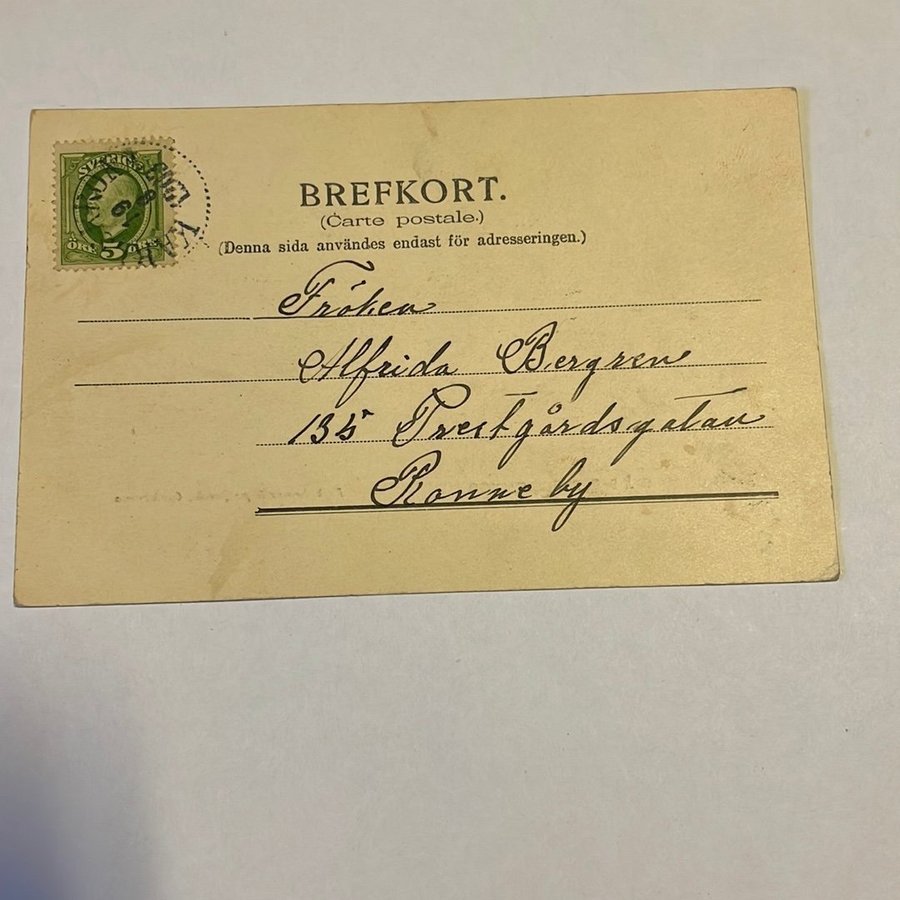 SVERIGE
5
BREFKORT.
(Carte postale.)
(Denna sida användes endast för adresseringen.)
Fröken
Alfrida Bergren
135 Prestgårdsgatan
Ronneby